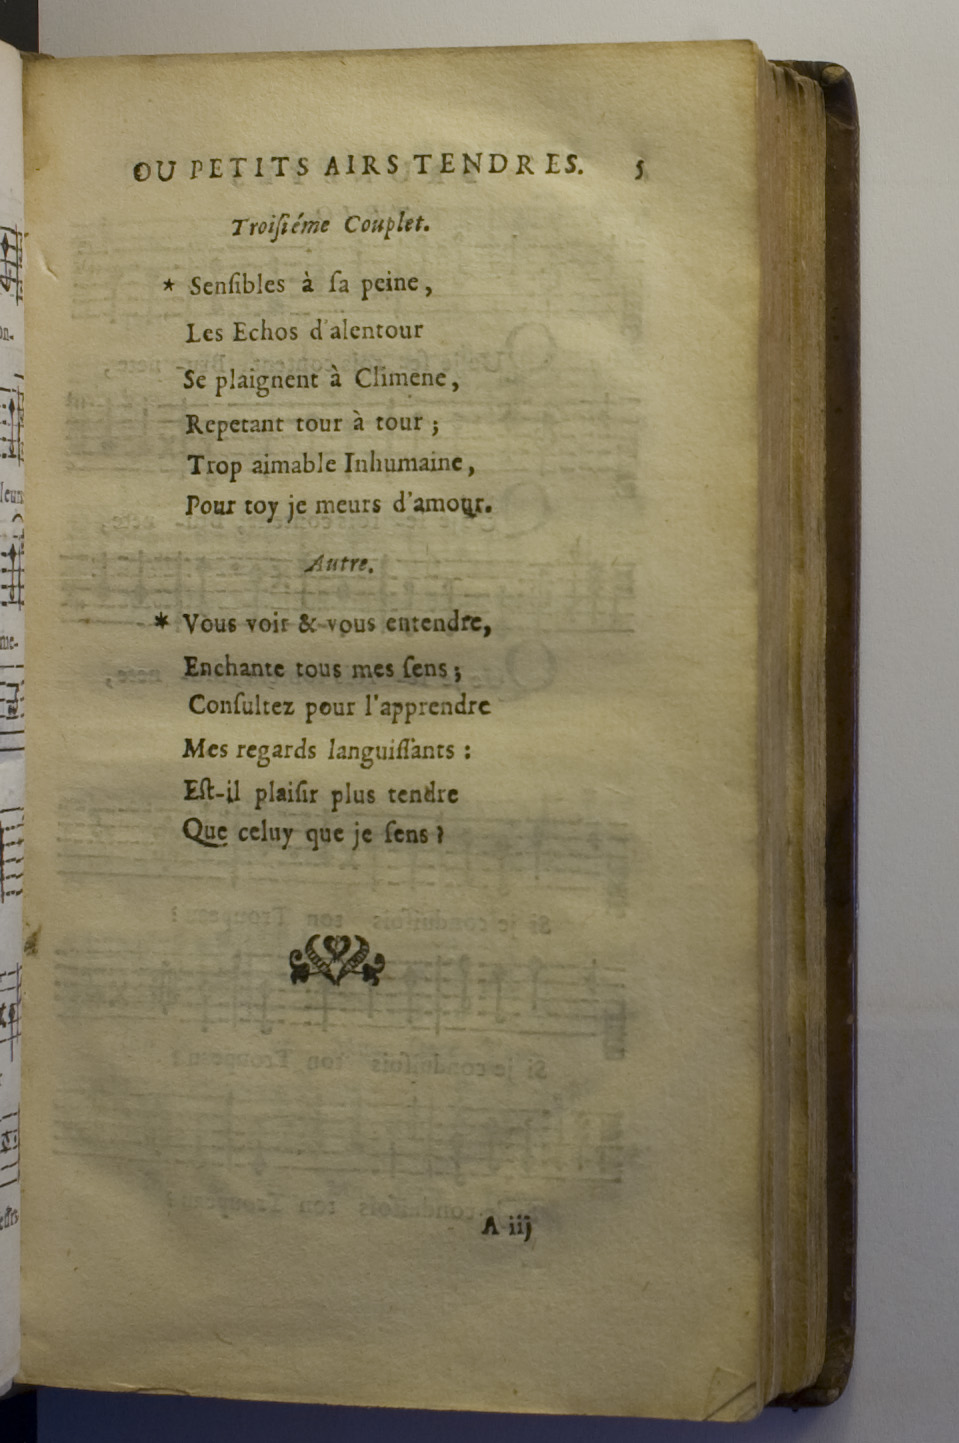 OU PETITS AIRS TENDRES. 5
Troiſiéme Couplet.
* Senſibles à ſa peine,
Les Echos d'alentour
Se plaignent à Climene,
Repetant tour à tour ;
Trop aimable Inhumaine,
Pour toy je meurs d'amour.
Autre.
* Vous voir & vous entendre,
Enchante tous mes ſens ;
Conſultez pour l'apprendre
Mes regards languiſſants :
Eſt-il plaiſir plus tendre
Que celuy que je ſens ?
A iij